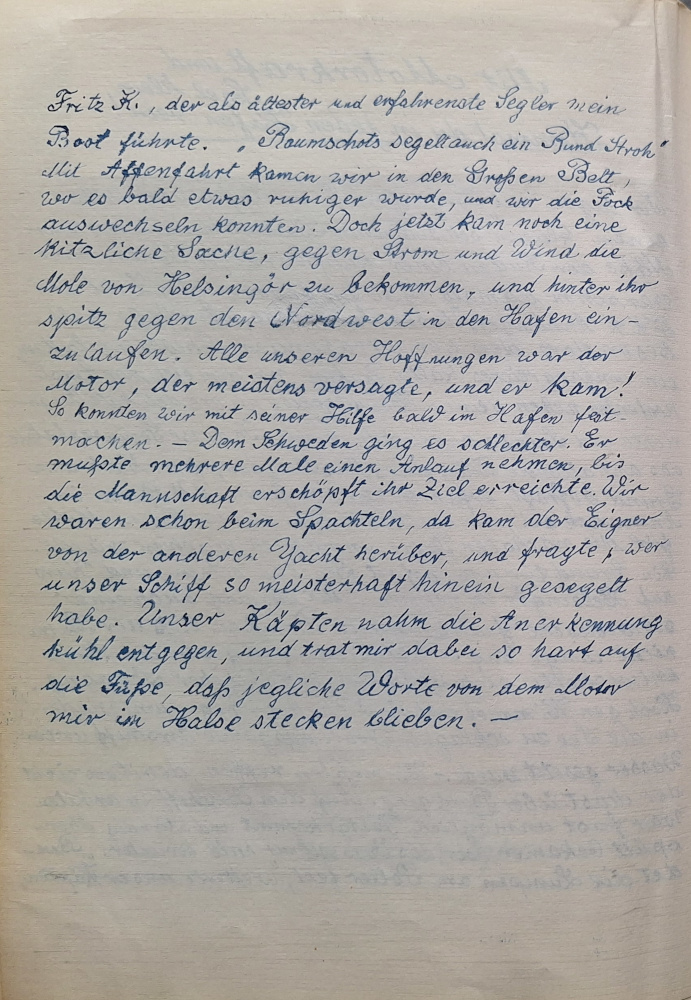 Fritz K., der als ältester und erfahrenste Segler mein
Boot führte. „Raumschots segelt auch ein Bund Stroh“
Mit Affenfahrt kamen wir in den Großen Belt,
wo es bald etwas ruhiger wurde, und wir die Fock
auswechseln konnten. Doch jetzt kam noch eine
kitzliche Sache, gegen Strom und Wind die
Mole von Helsingör zu bekommen, und hinter ihr
spitz gegen den Nordwest in den Hafen ein-
zulaufen. Alle unseren Hoffnungen war der
Motor, der meistens versagte, und er kam!
So konnten wir mit seiner Hilfe bald im Hafen fest-
machen. — Dem Schweden ging es schlechter. Er
mußte mehrere Male einen Anlauf nehmen, bis
die Mannschaft erschöpft ihr Ziel erreichte. Wir
waren schon beim Spachteln, da kam der Eigner
von der anderen Yacht herüber, und fragte, wer
unser Schiff so meisterhaft hinein gesegelt
habe. Unser Käpten nahm die Anerkennung
kühl entgegen, und trat mir dabei so hart auf
die Füße, daß jegliche Worte von dem Motor
mir im Halse stecken blieben. —